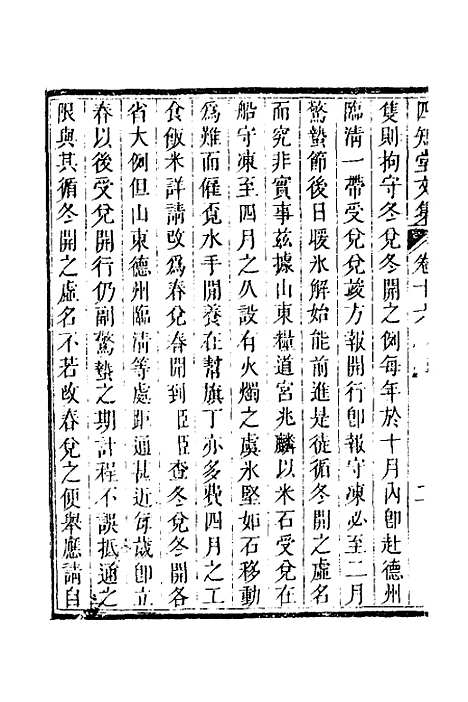 四知堂文集 卷十六
隻則拘守冬兌冬開之例每年於十月內卽赴德州
臨清一帶受兌兌竣方報開行卽報守凍必至二月
驚蟄節後日暖氷解始能前進是徒循冬開之虛名
而究非實事茲據山東糧道宮兆麟以米石受兌在
船守凍至四月之久設有火燭之虞氷堅如石移動
爲難而僱覔水手閒養在幫旗丁亦多費四月之工
食飯米詳請改爲春兌春開到臣臣查冬兌冬開各
省大例但山東德州臨清等處距通甚近每歲卽立
春以後受兌開行仍副驚蟄之期計程不誤抵通之
限與其循冬開之虛名不若改春兌之便舉應請自